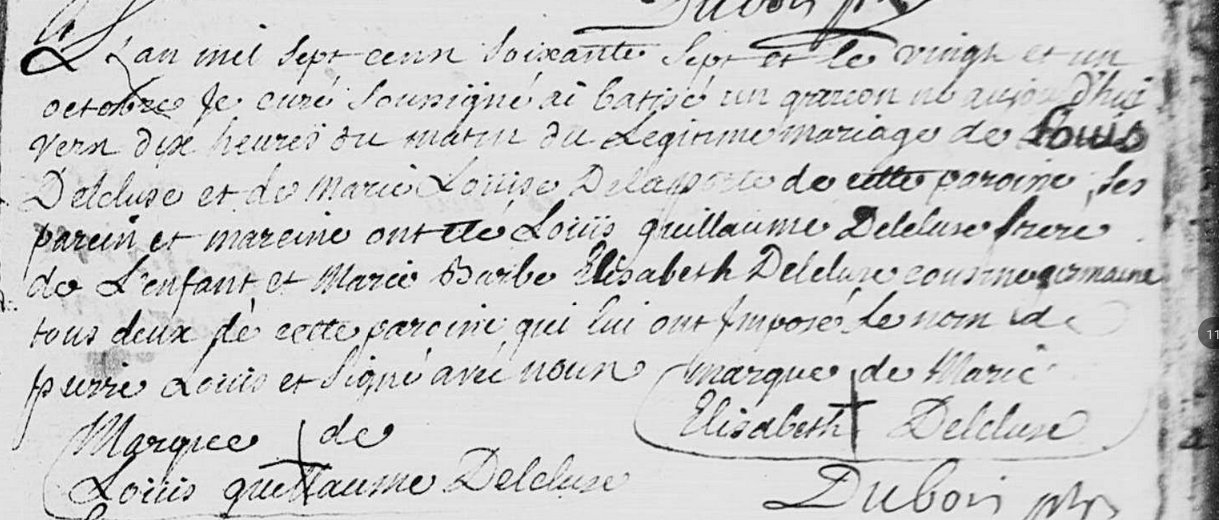 Dubois ptre
L'an mil sept cenn soixante sept et le vingt et un
octobre je curé soussigné ai batisé un garcon né aujourd'hui
vern dix heures du matin du Legitime mariage de Louis
Delcluse et de Marie Louise Delaporte de cette paroine, ses
parein et mareine ont été Louis guillaume Delcluse frere
de L'enfant et Marie Barbe Elisabeth Delcluse cousine germaine
tous deux de cette paroine qui lui ont Imposé le nom de
pierre Louis et signé avec noun
marque de Marie
Elisabeth Delcluse
Marque de
Louis guillaume Delcluse
Dubois ptre